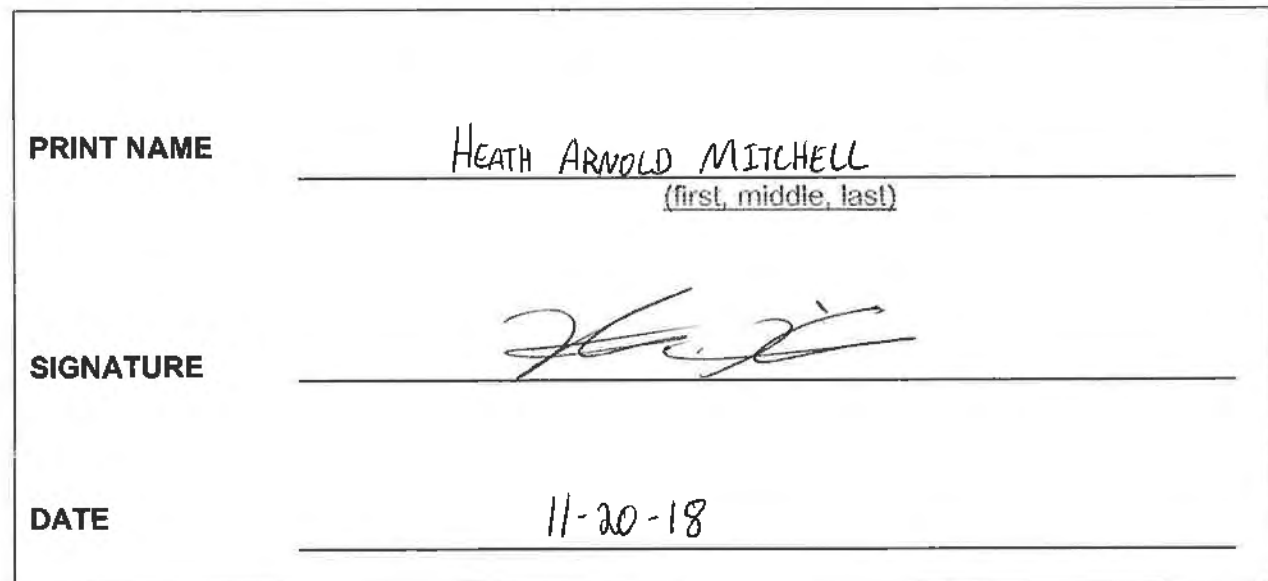 PRINT NAME HEATH ARNOLD MITCHELL
(first, middle, last)
SIGNATURE
DATE 11-20-18